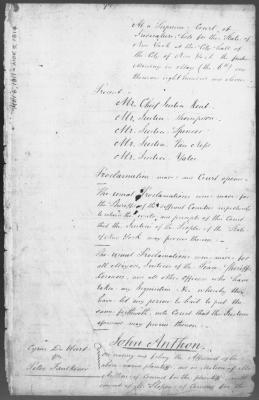 At a Supreme Court of
Judicature held for the State of
New York at the City Hall of
the City of New York the first
Monday in May (the 6th) one
thousand eight hundred and eleven
Present
Mr. Chief Justice Kent
Mr. Justice Thompson
Mr. Justice Spencer
Mr. Justice Van Ness
Mr. Justice Yates
Proclamation made and Court opened
The usual Proclamations were made for
the Sheriffs of the different Counties respectively
to return the writs and precepts of the Court
that the Justices of the People of the State
of New York may proceed thereon
The usual Proclamations were made for
all Mayors, Justices of the Peace, Sheriffs
Coroners, and all other officers who have
taken any Inquisition &c whereby they
have let any person to bail to put the
same forthwith into Court that the Justices
aforesaid may proceed thereon
John Anthon
On reading and filing the Affidavit of the
above named plaintiff and on motion of Mr.
of Counsel for the plaintiff
of Counsel for the